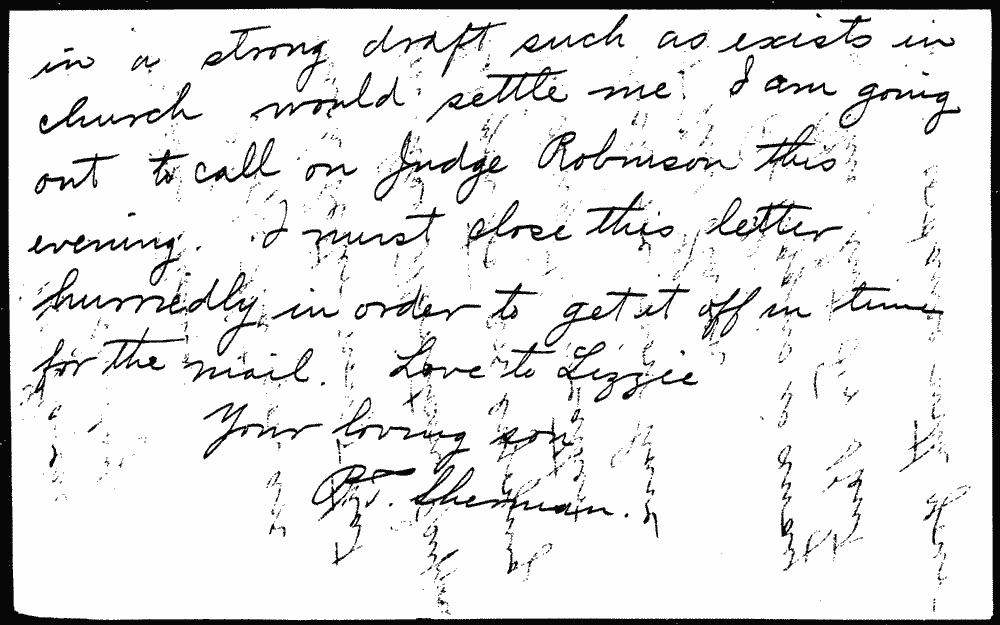 in a strong draft such as exists in
church would settle me. I am going
out to call on Judge Robinson this
evening. I must close this letter
hurriedly in order to get it off in time
for the mail. Love to Lizzie
Your loving son
P.T. Sherman.